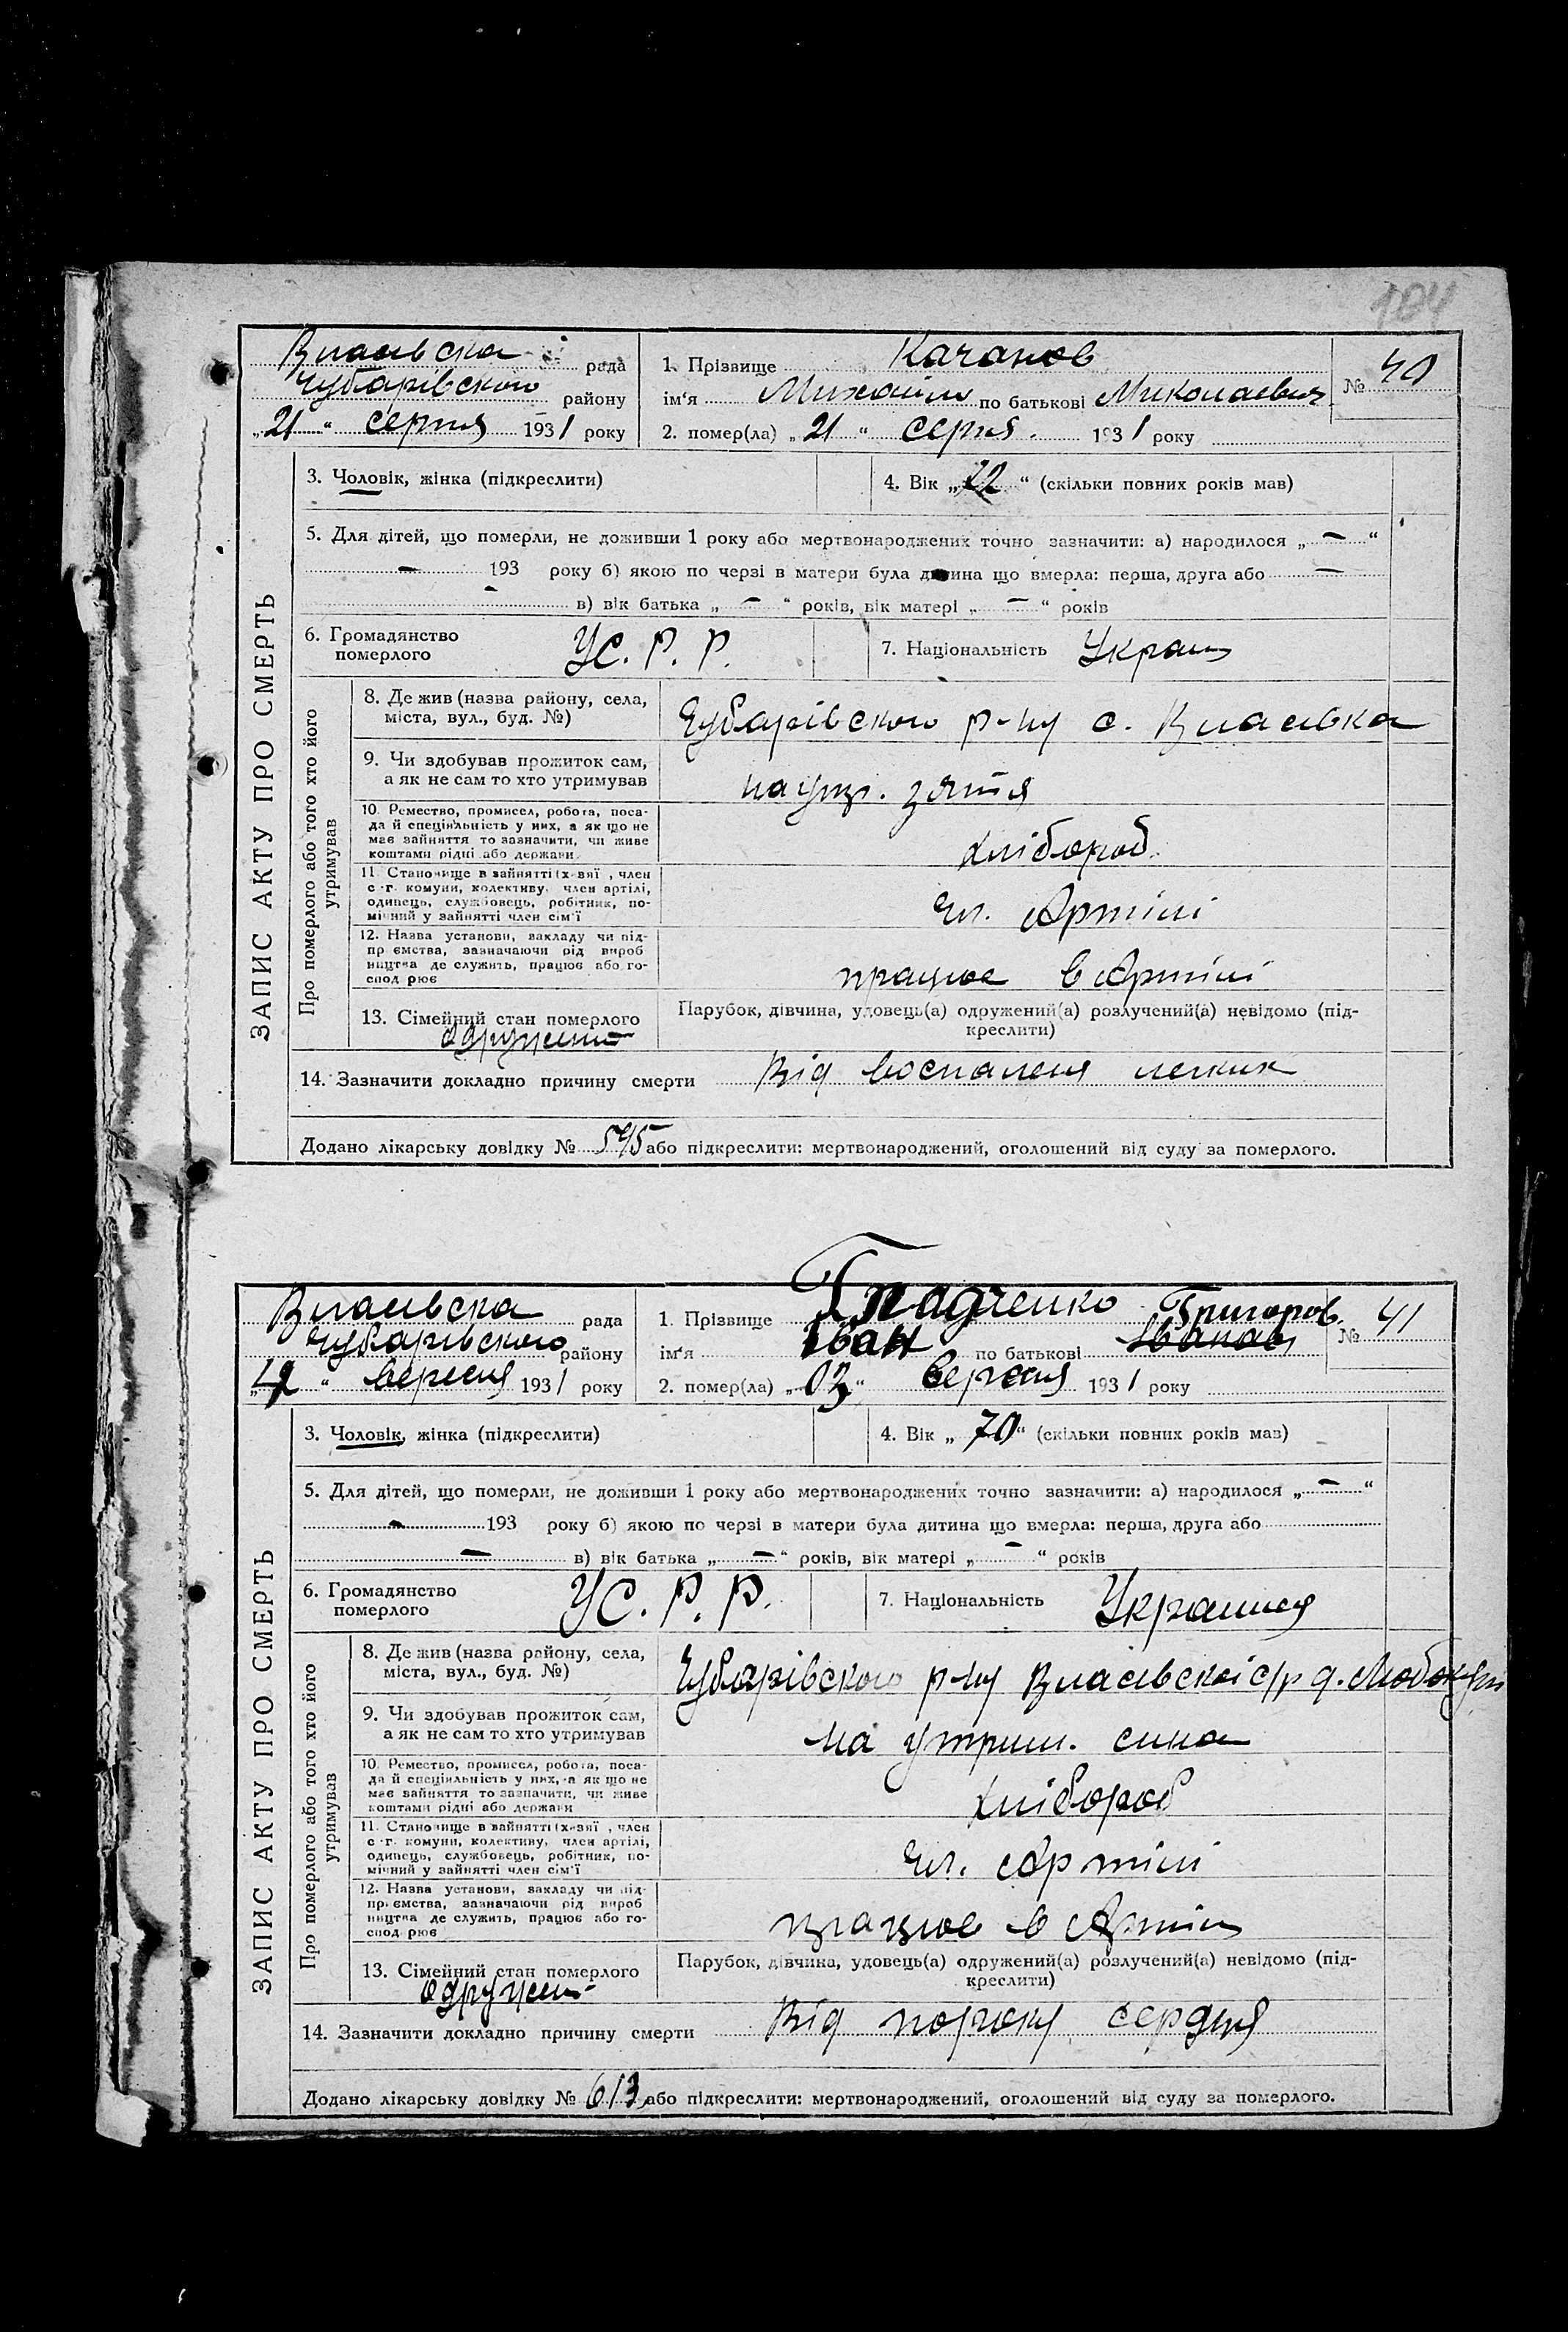 104
Власівска рада
Чубарівського району
„21“ серпня 1931 року
1. Прізвище Качанов
ім‘я Михайло по батькові Миколаєвич
№ 40
2. помер(ла) „21“ серпня 1931 року
3. Чоловік, жінка (підкреслити)
4. Вік „22“ (скільки повних років мав)
5. Для дітей, що померли, не доживши 1 року або мертвонароджених точно зазначити: а) народилося „—“
— 193 року б) якою по черзі в матери була дитина що вмерла: перша, друга або —
— в) вік батька „—“ років, вік матері „—“ років
6. Громадянство померлого УС.Р.Р.
7. Національність Украін
ЗАПИС АКТУ ПРО СМЕРТЬ
Про померлого або того хто його утримував
8. Де жив (назва району, села,
міста, вул., буд. №)
Чубарівского р-ну с. Власівка
9. Чи здобував прожиток сам,
а як не сам то хто утримував
зятя
10. Ремество, промисел, робота, поса-
да й спеціяльність у них, а як що не
має зайняття то зазначити, чи живе
коштами рідні або держави
хлібороб.
11. Становище в зайнятті (х-вяї, член
с.-г. комуни, колективу, член артілі,
одинець, службовець, робітник, по-
мічний у зайнятті член сім‘ї
чл. Артілі
12. Назва установи, закладу чи під-
приємства, зазначаючи рід вироб
ництва де служить, працює або го-
сподарює
працює в Артілі
13. Сімейний стан померлого
одружений
Парубок, дівчина, удовець(а) одружений(а) розлучений(а) невідомо (під-
креслити)
14. Зазначити докладно причину смерти Від воспаленя легких
Додано лікарську довідку № 595 або підкреслити: мертвонароджений, оголошений від суду за померлого.
Власівска рада
Чубарівського району
вересня 1931 року
1. Прізвище Гладченко
ім‘я Іван по батькові Григоров.
№ 41
2. помер(ла) „03“ вересня 1931 року
3. Чоловік, жінка (підкреслити)
4. Вік „70“ (скільки повних років мав)
5. Для дітей, що померли, не доживши 1 року або мертвонароджених точно зазначити: а) народилося „—“
— 193 року б) якою по черзі в матери була дитина що вмерла: перша, друга або
— в) вік батька „—“ років, вік матері „—“ років
6. Громадянство померлого УС.Р.Р.
7. Національність Украинця
ЗАПИС АКТУ ПРО СМЕРТЬ
Про померлого або того хто його утримував
8. Де жив (назва району, села,
міста, вул., буд. №)
Чубарівского р-ну Власівскоі с/р
9. Чи здобував прожиток сам,
а як не сам то хто утримував
на утрим. сина
10. Ремество, промисел, робота, поса-
да й спеціяльність у них, а як що не
має зайняття то зазначити, чи живе
коштами рідні або держави
хлібороб
11. Становище в зайнятті (х-вяї, член
с.-г. комуни, колективу, член артілі,
одинець, службовець, робітник, по-
мічний у зайнятті член сім‘ї
чл. Артілі
12. Назва установи, закладу чи під-
приємства, зазначаючи рід вироб
ництва де служить, працює або го-
сподарює
працює в Артілі
13. Сімейний стан померлого
одружен
Парубок, дівчина, удовець(а) одружений(а) розлучений(а) невідомо (під-
креслити)
14. Зазначити докладно причину смерти Від пороку сердця
Додано лікарську довідку № 613 або підкреслити: мертвонароджений, оголошений від суду за померлого.